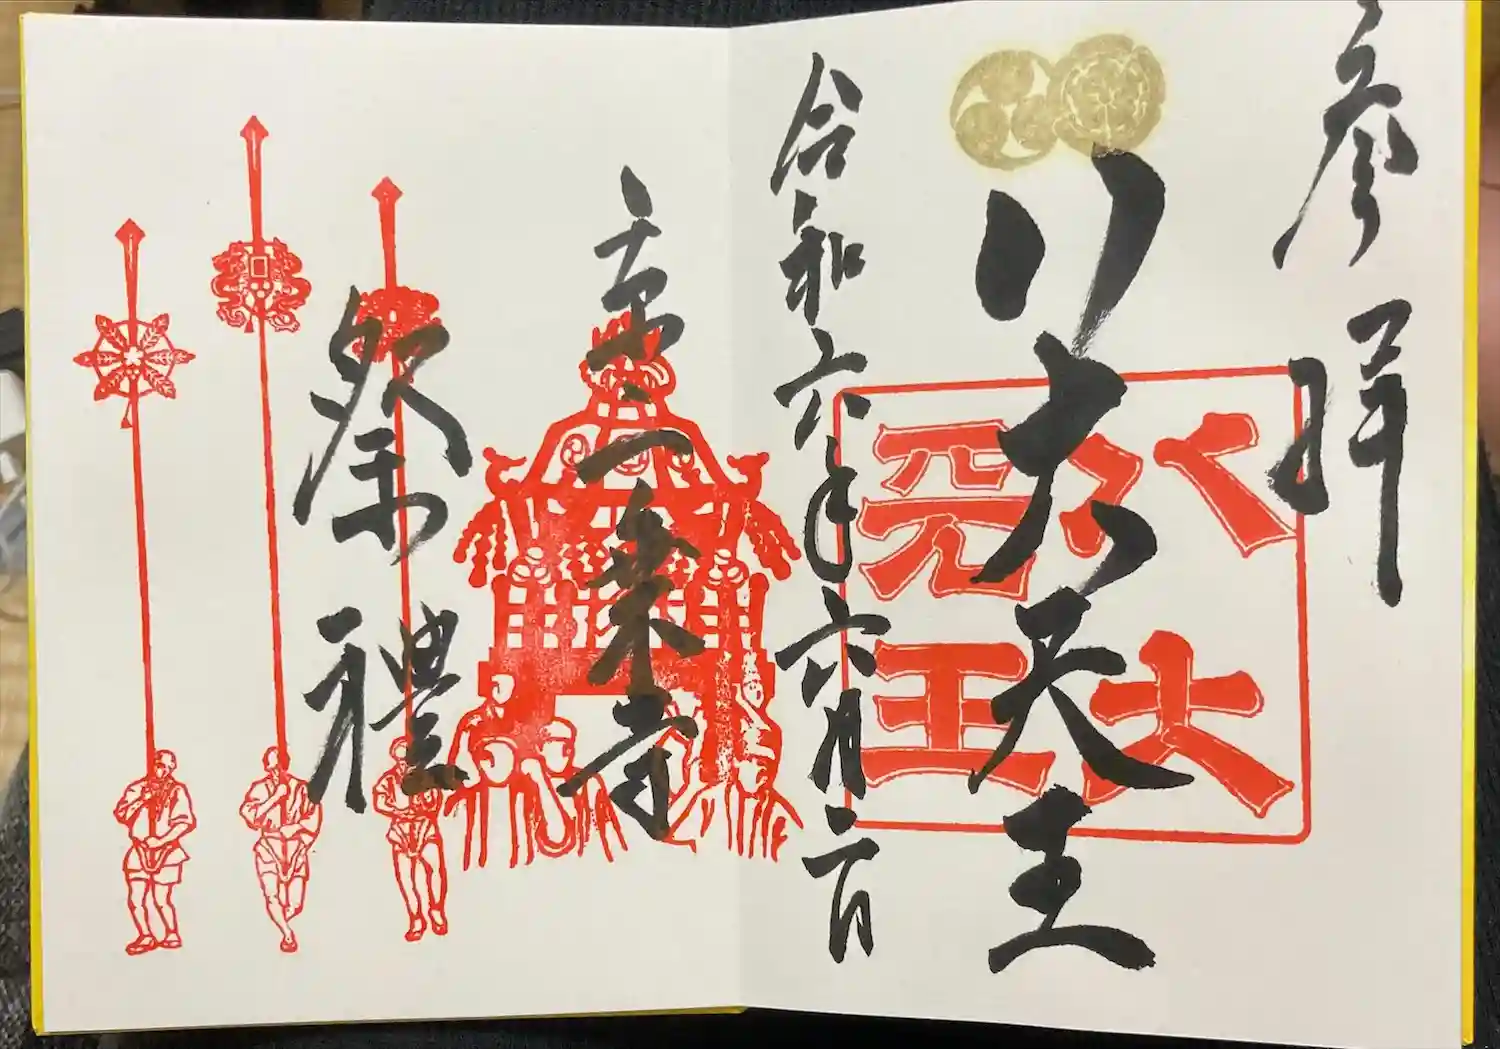 参拝
八大天王
八大
天王
令和六年六月二日
京一乗寺
祭禮